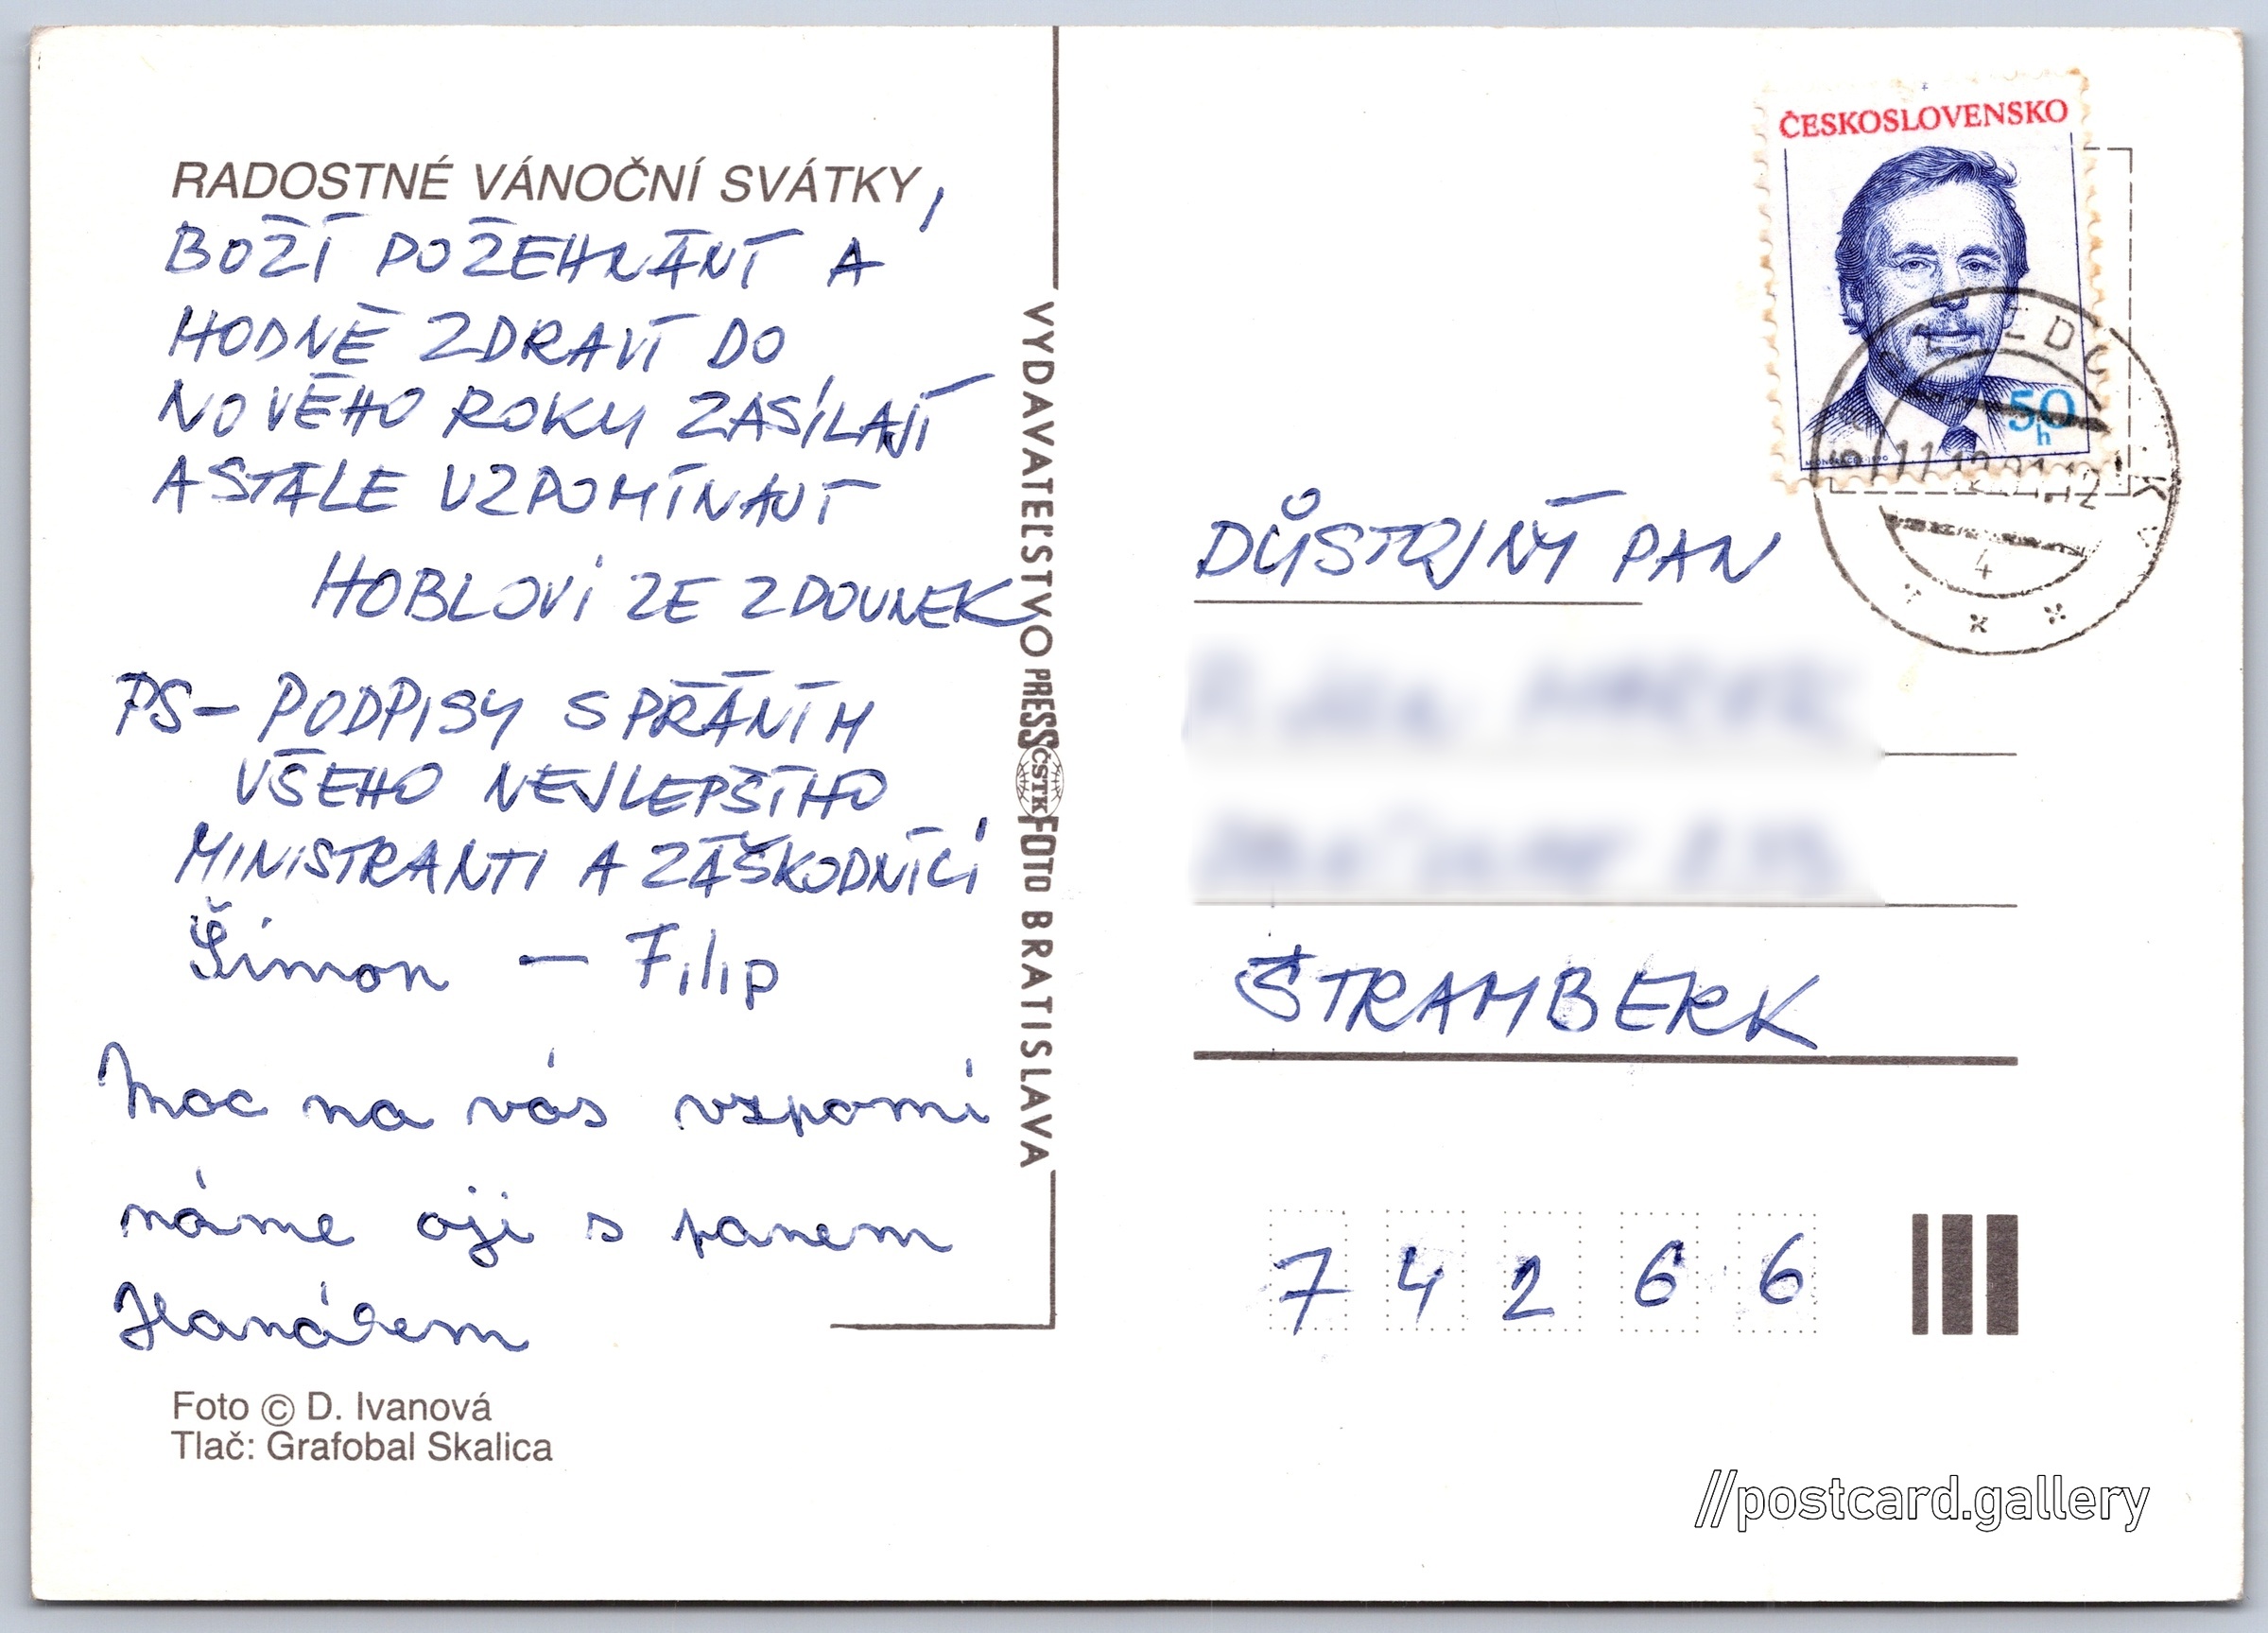 RADOSTNÉ VÁNOČNÍ SVÁTKY,
BOŽÍ POŽEHNÁNÍ A
HODNĚ ZDRAVÍ DO
NOVÉHO ROKU ZASÍLAJÍ
A STÁLE VZPOMÍNAJÍ
HOBLOVI ZE ZDOUNEK
PS- PODPISY S PŘÁNÍM
VŠEHO NEJLEPŠÍHO
MINISTRANTI A ZÁŠKODNÍCI
Šimon - Filip
Moc na vás vzpomí
náme oji s panem
Hanákem
Foto © D. Ivanová
Tlač: Grafobal Skalica
VYDAVATEĽSTVO PRESSFOTO BRATISLAVA
ČSTK
ČESKOSLOVENSKO
50
h
11.12.91.12
4
DŮSTOJNÝ PAN
ŠTRAMBERK
74266
//postcard.gallery